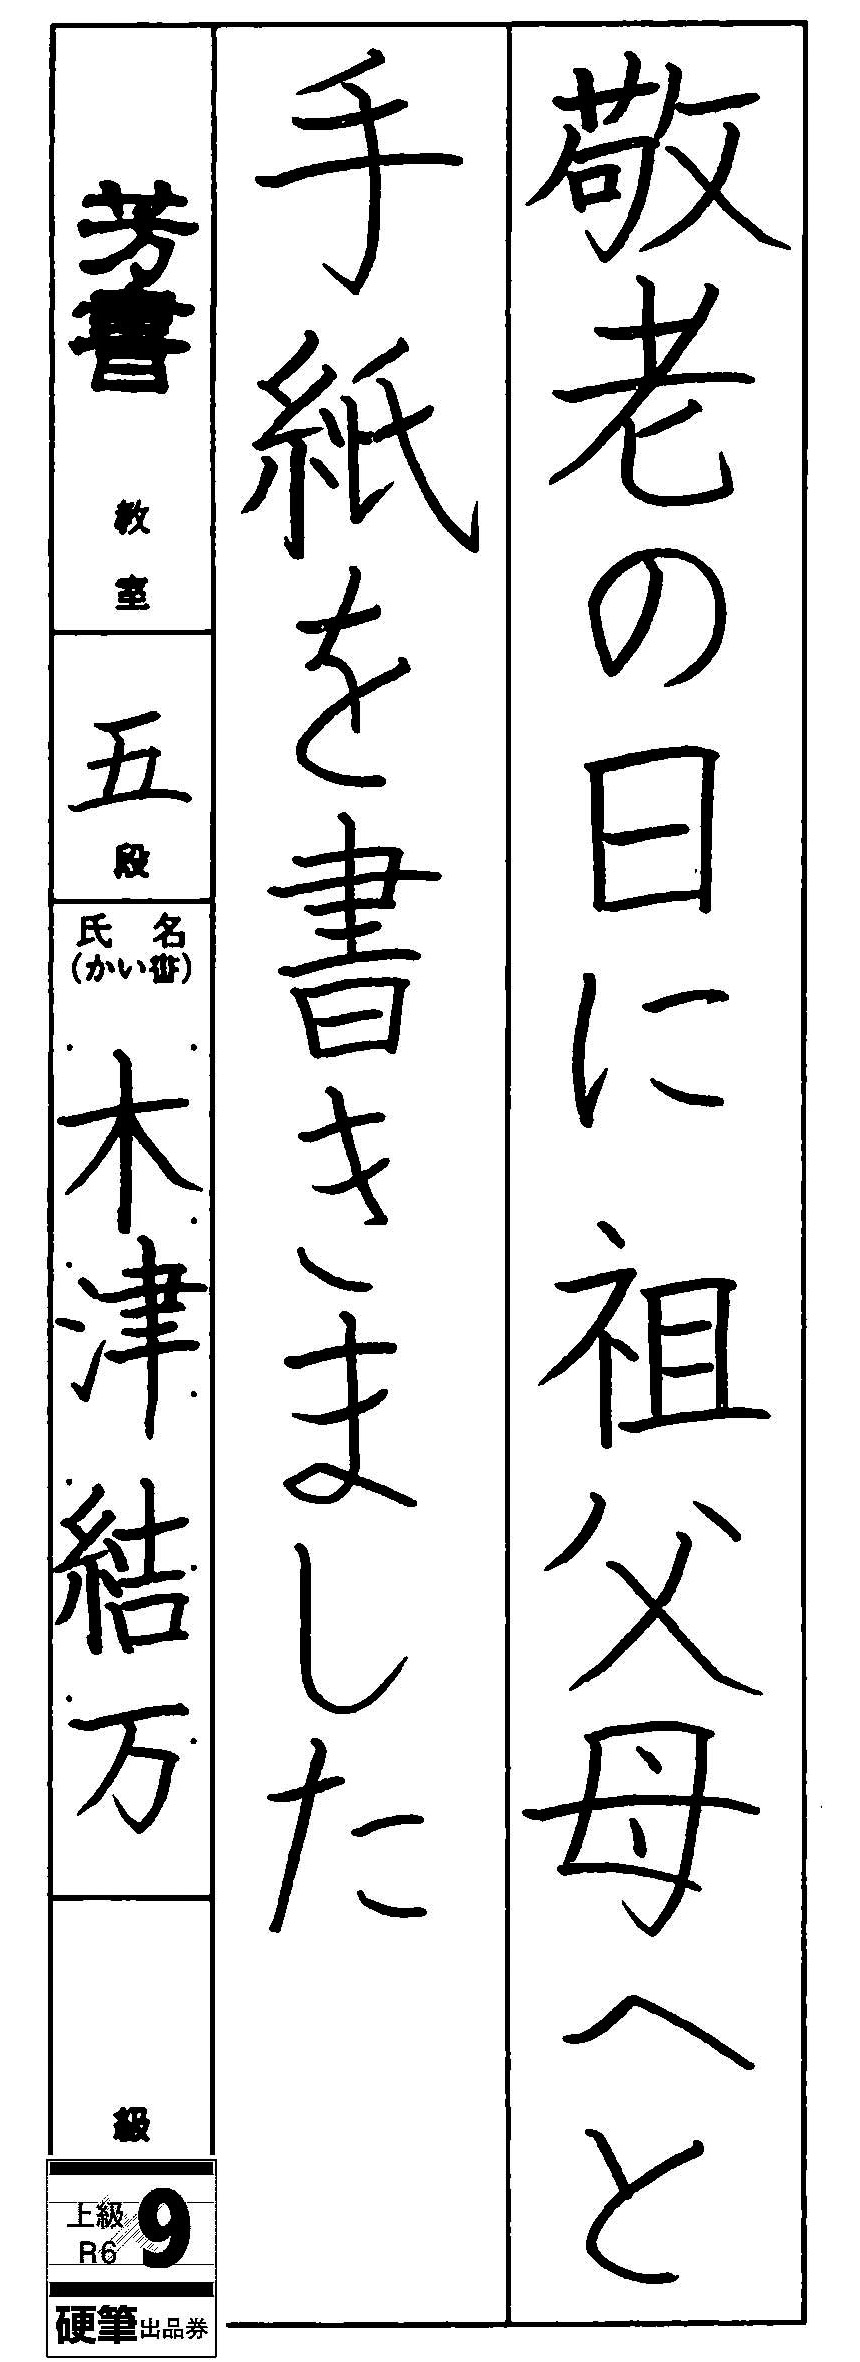 敬老の日に祖父母へと
手紙を書きました
芳書
教室
五
段
氏名
(かい書)
木津結万
級
上級
R6
9
硬筆出品券